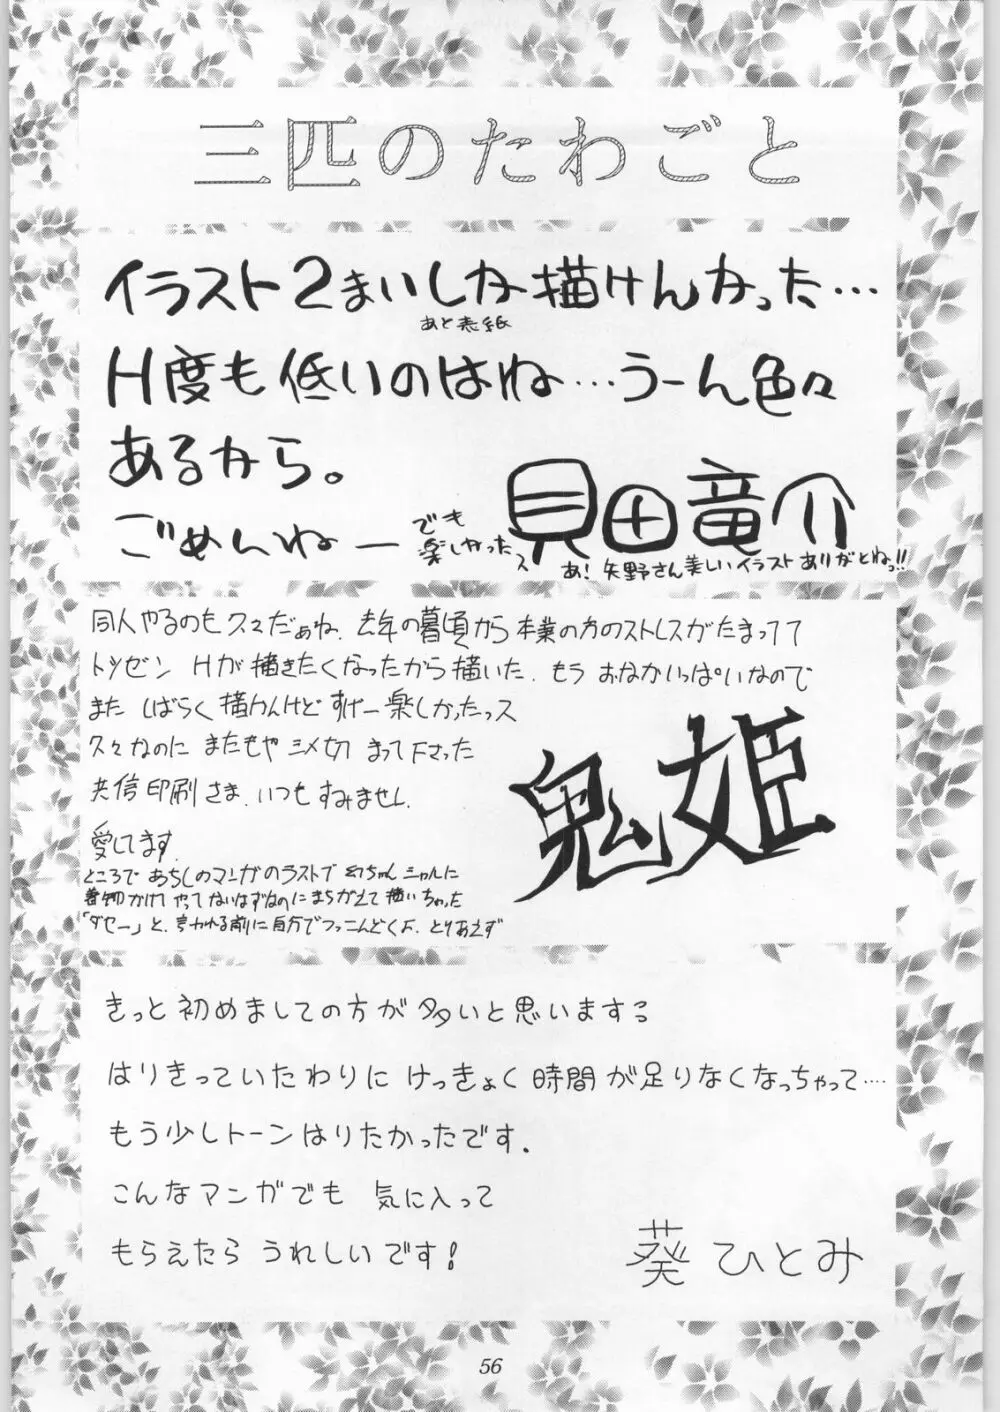 三匹のたわごと
イラスト2まいしか描けんかった…
あと表紙
H度も低いのはね…うーん色々
あるから。
ごめんねー
でも
楽しかったス
貝田竜介
あ！矢野さん美しいイラストありがとねっ!!
同人やるのも久々だぁね、去年の暮頃から本業の方のストレスがたまってて
トツゼン Hが描きたくなったから描いた. もう おなかいっぱいなので
また しばらく描かんけど すげー楽しかったっス
久々なのに またもや シメ切 まって下さった
共信印刷さま、いつも すみません.
愛してます.
ところで あちしのマンガのラストで 幻ちゃん シャルに
着物かけて やってないはずなのに まちがえて 描いちゃった
「ダセー」と、言われる前に自分でつっこんどくよ. とりあえず
鬼姫
きっと初めましての方が多いと思いまする
はりきっていたわりに けっきょく時間が足りなくなっちゃって‥‥
もう少しトーンはりたかったです.
こんなマンガでも 気に入って
もらえたら うれしいです！
葵ひとみ
56